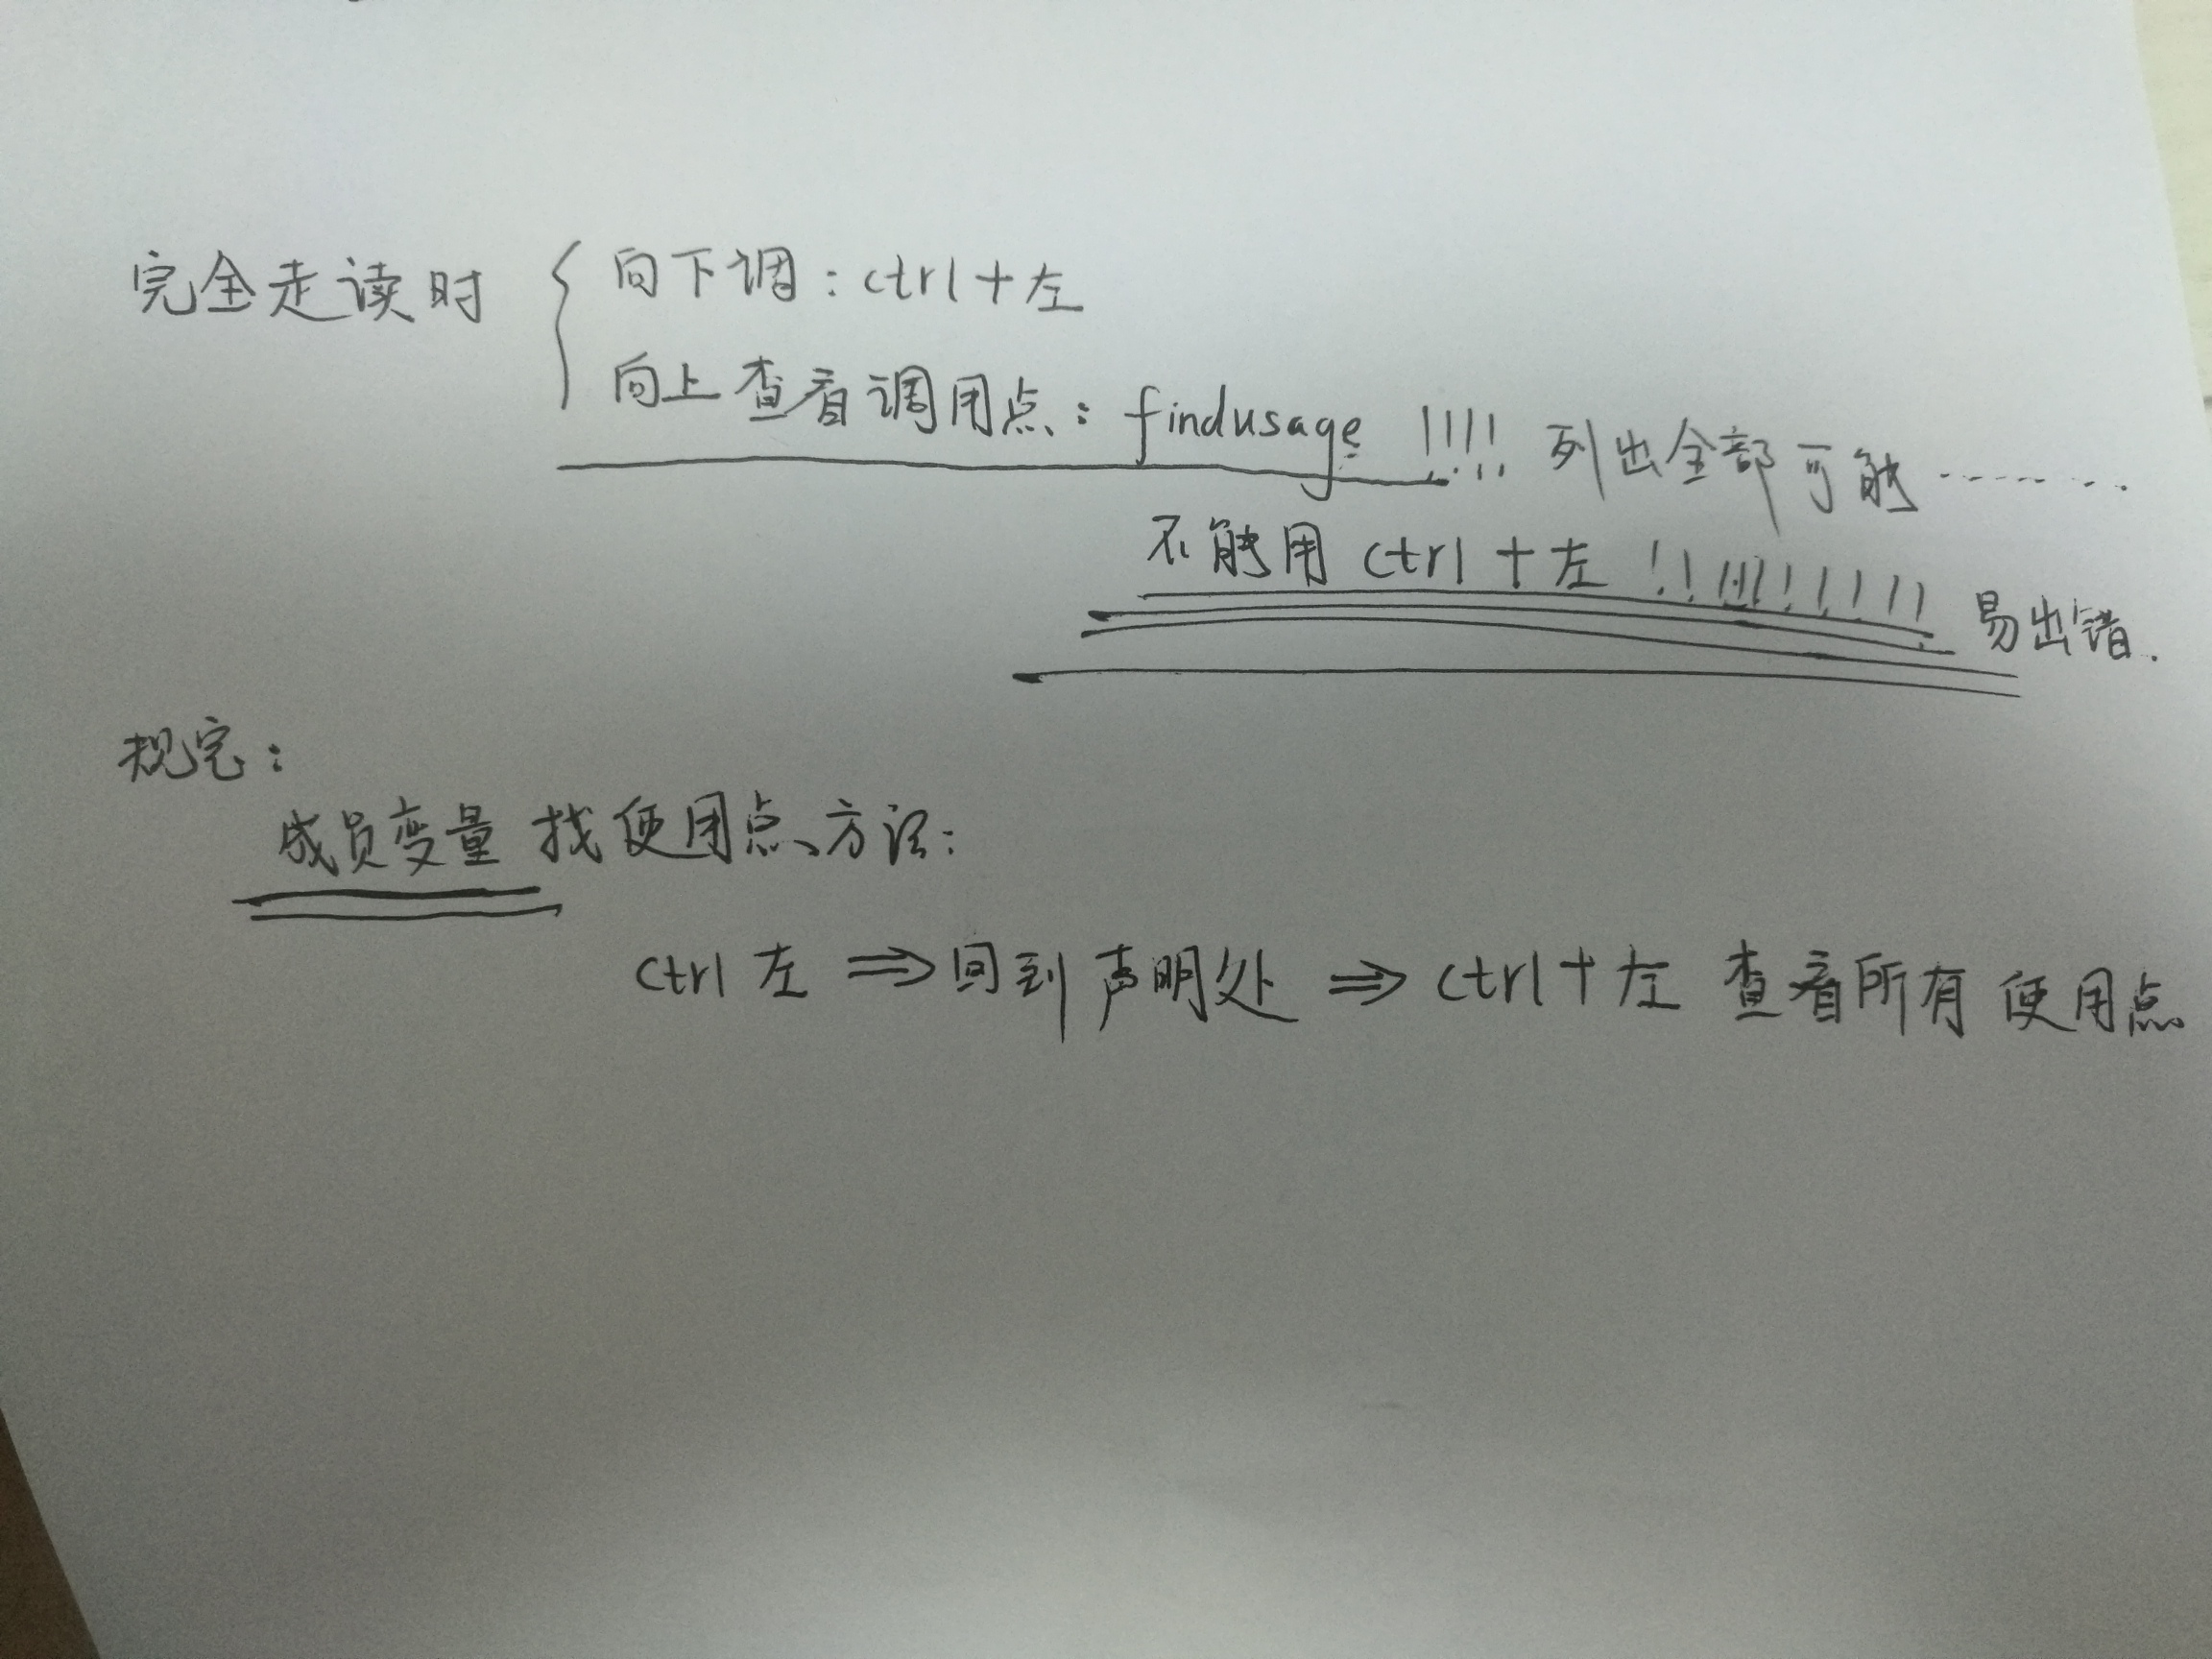 完全走读时 { 向下调：ctrl+左
向上查看调用点：findusage !!!! 列出全部可能........
不能用 ctrl+左 !!!!!!!!!!! 易出错.
规定：
成员变量 找使用点方法：
ctrl 左 ⇒ 回到声明处 ⇒ ctrl+左 查看所有使用点